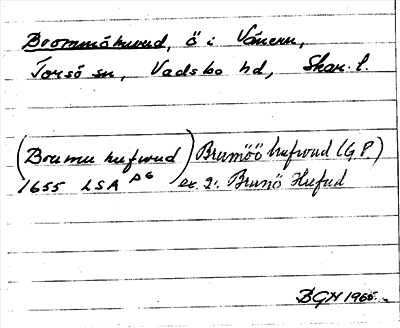 Brommöhuvud, ö i Vänern,
Torsö sn, Vadsbo hd, Skar. l.
(Brumu hufwud) Brumöö hufwud (G.P.)
1655 LSA P6 ex. 2: Brunö Hufud
BGN 1965